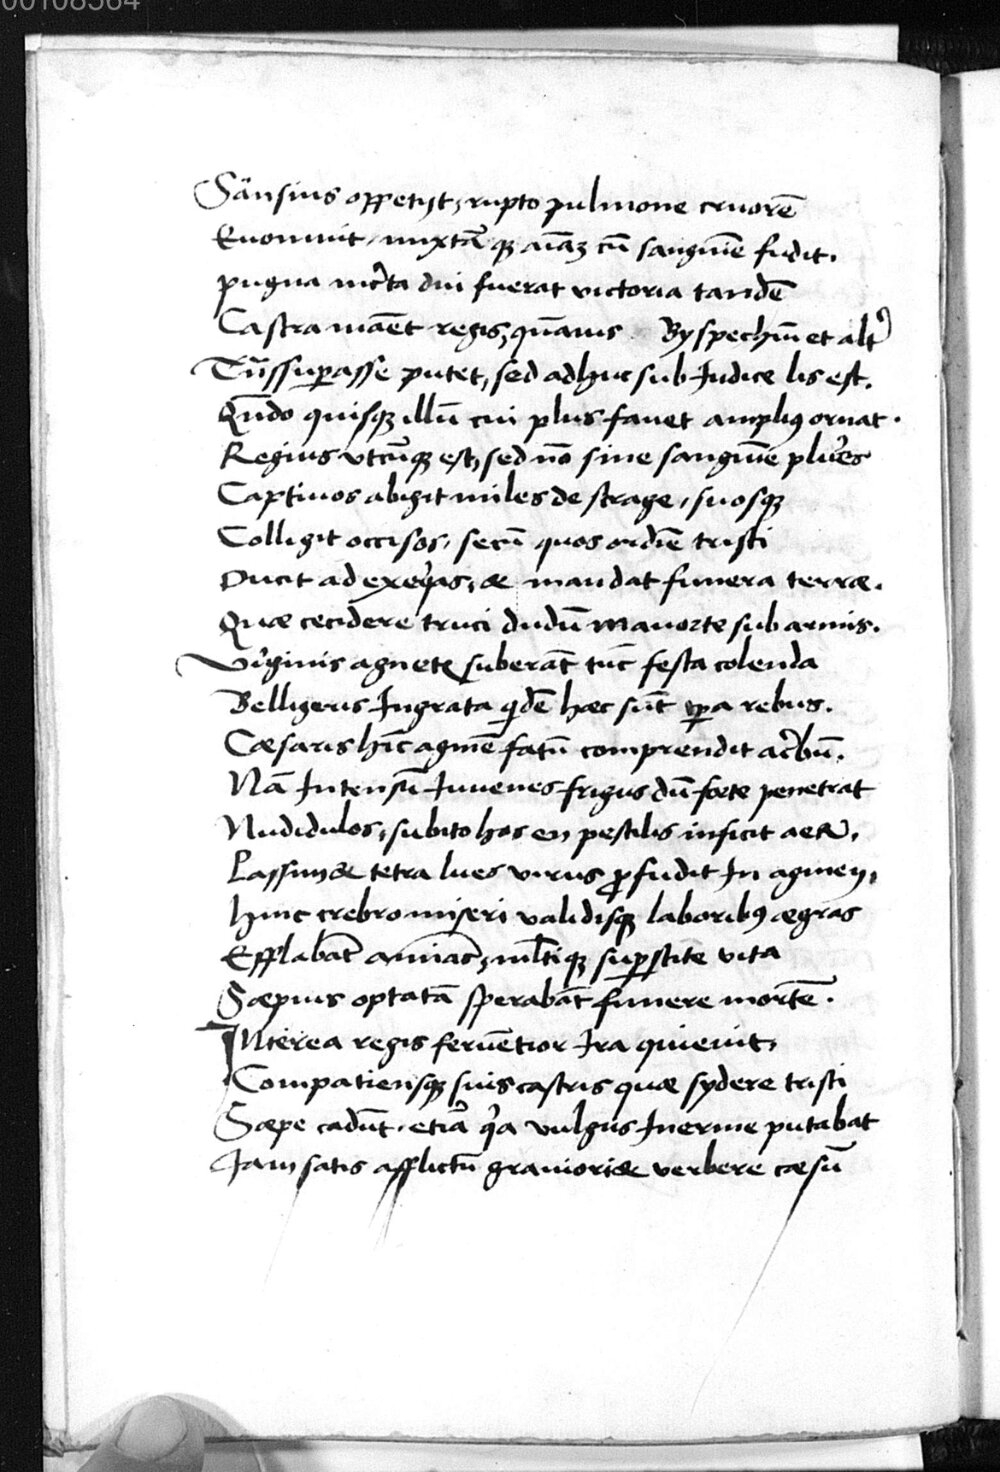 00108564
Sänsius oppetijt, rupto pulmone cruorē
Euomuit, mixtā q̃ aīaꝫ cū sanguīe fudit.
pugna incẽta diu fuerat victoria tandē
Castra manēt regis, quāuis Byspechiū et altẽ
Tūssuꝑasse putet, sed adhuc sub Iudice lis est.
Qñdo quisqꝫ illū cui plus fauet ampliꝰ ornat.
Regius vtcūqꝫ est, sed nō sine sanguīe plures
Captiuos abigit miles de strage, suosqꝫ
Colligit occisos, secū quos ordīe tristi
Ducit ad exequias, & mandat funera terræ.
Quæ cecidere truci dudū Mauorte sub armis.
Virginis agnetꝭ suberāt tūc festa colenda
Belligeris Ingrata quidē hæc sūt tꝑa rebus.
Cæsaris hīc agmē fatū comprendit acerbū.
Nā Intensū Iuuenes frigus dū forte penetrat
Nudidulos, subito hos en pestilis inficit aer.
Passim & tetra lues virus ꝓfudit In agmen,
hinc crebro miseri validisqꝫ laboribꝰ ægras
Efflabāt animas, mltiqꝫ suꝑstite vita
Sæpius optatā sperabāt funere mortē.
INterea regis feruētior Ira quieuit,
Compatiensqꝫ suis castris quæ sydere tristi
Sæpe cadūt, etiā qͥa vulgus Inerme putabat
Iam satis afflictū grauiori & verbere cæsū